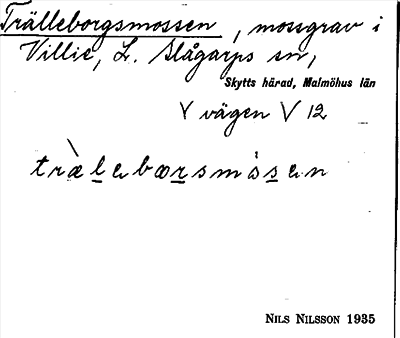 Trälleborgsmossen, mossgrav i
Villie, L. Slågarps sn,
Skytts härad, Malmöhus län
V vägen V 12
træleborsmosen
NILS NILSSON 1935